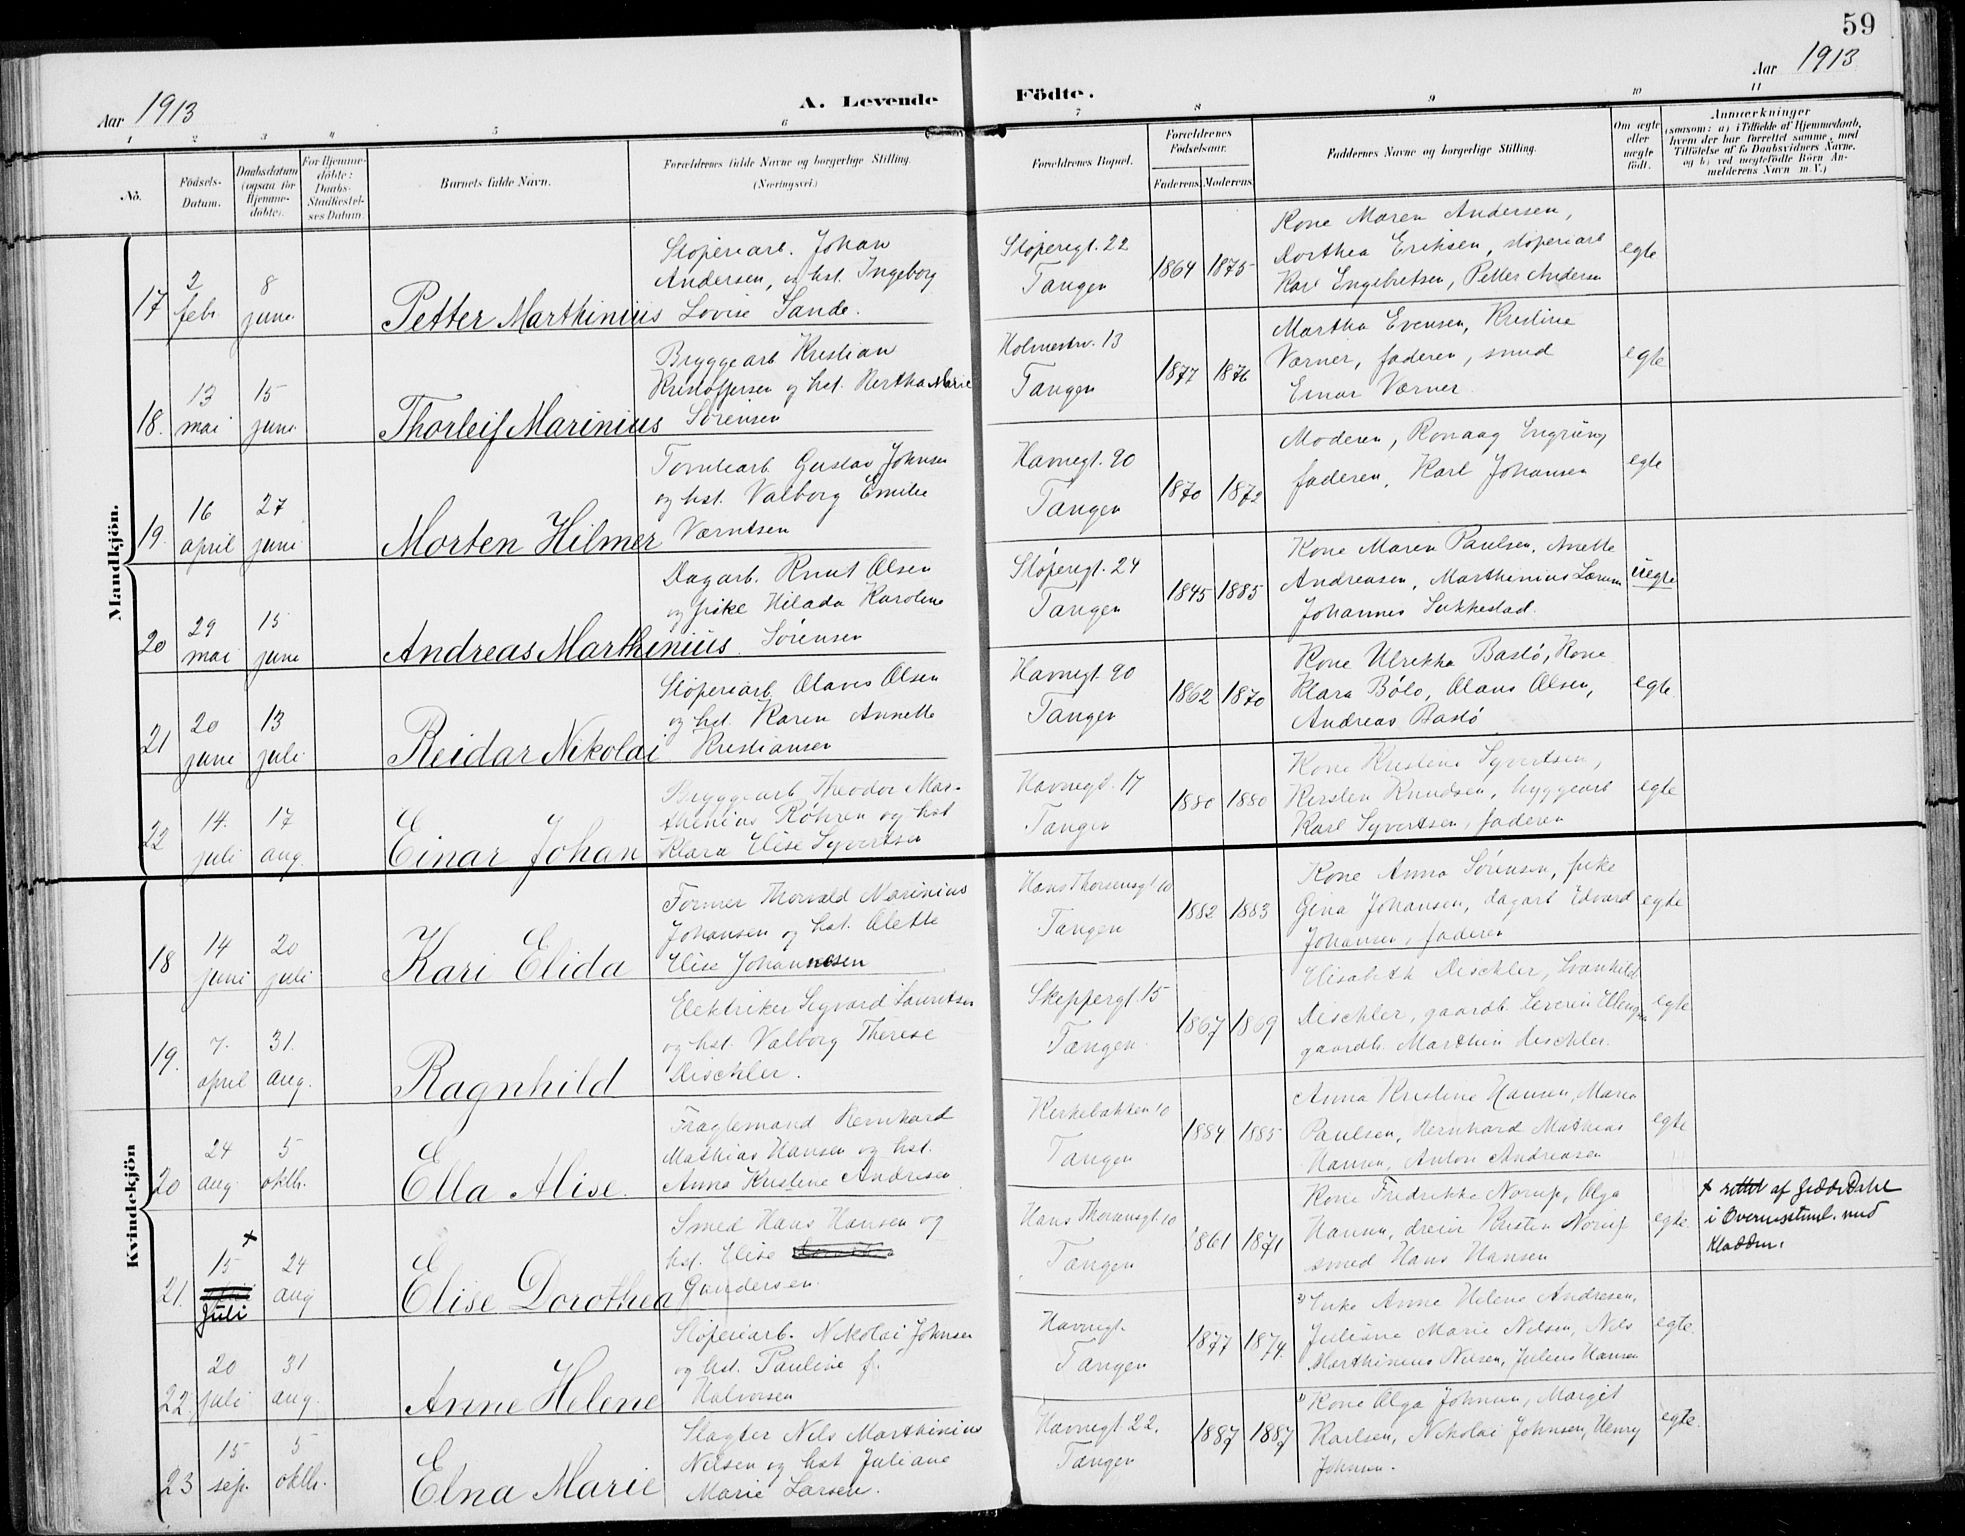 59
Aar 1913
A. Levende Födte.
Aar 1913
1 2 3 4 5 6 7 8 9 10 11
No.
Födsels-
Datum.
Daabsdatum
(ogsaa for
Hjemme-
döbte).
For Hjemme-
döbte:
Daabs-
Stadfæstel-
ses Datum.
Barnets fulde Navn.
Forældrenes fulde Navne og borgerlige Stilling.
(Næringsvei.)
Forældrenes Bopæl.
Forældrenes
Födselsaar.
Faderens. Moderens.
Faddernes Navne og borgerlige Stilling.
Om ægte
eller
uægte
födt.
Anmærkninger
(saasom: a) i Tilfælde af Hjemmedaab,
hvem der har forrettet samme, med
Tilföielse af to Daabsvidners Navne,
og b) ved uægtefödte Börn An-
melderens Navn m. V.)
Mandkjön.
17
2
febr
8
juni
Petter Marthinius
Støperiarb. Johan
Andersen, og hst. Ingeborg
Lovise Sande.
Støperegt. 22
Tangen
1864 1875
Kone Maren Andersen,
Dorthea Eriksen, støperiarb
Karl Engebretsen, Petter Andersen
egte
18.
13
mai
15
juni
Thorleif Marinius
Bryggearb Kristian
Kristoffersen og hst. Bertha Marie
Sørensen
Holmestrv. 13
Tangen
1877 1876
Martha Evensen, Kristine
Værner, faderen, smed
Einar Værner
egte
19.
16
april
27
juni
Morten Hilmer
Tomtearb Gustav Johnsen
og hst. Valborg Emilie
Værntsen
Havnegt. 90
Tangen
1870 1872
Moderen,
faderen, Karl Johansen
egte
20
29
mai
15
juni
Andreas Marthinius.
Dagarb. Knut Olsen
og pike Karoline
Sørensen
Støperegt. 24
Tangen
1845 1885
Kone Maren Paulsen, Anette
Andreasen, Marthinius
Johannes
uegte
21
20
juni
13
juli
Reidar Nikolai
Støperiarb Olavs Olsen
og hst. Karen Annette
Kristiansen
Havnegt 90
Tangen
1862 1870
Kone Ulrikka Bastø, Kone
Klara Bølo, Olaus Olsen,
Andreas Bastø
egte
22
14.
juli
17
aug.
Einar Johan
Bryggearb Theodor Mar-
thinius Røhren og hst
Klara Elise Syvertsen
Havnegt. 17
Tangen
1880 1880
Kone Kristene Syvertsen,
Kirsten Knudsen, bryggearb
Karl Syvertsen, faderen
egte
Kvindekjön
18
14
juni
20
juli
Kari Elida
Former Thorvald Marinius
Johansen og hst. Olette
Elise Johannesen
Hans Thorsensgt 10
Tangen
1882 1883
Kone Anna Sørensen, pike
Gina Johansen, dagarb Edvard
Johansen, faderen
egte
19.
7.
april
31.
aug.
Ragnhild
Elektriker Sigvard Lauritsen
og hst. Valborg Therese
Dischler.
Skeppergt. 15
Tangen.
1867 1869
Elisabeth Dischler, Svanhild
Dischler, gaardb. Severin
gaardb. Marthin Dischler.
egte
20
24
aug
5
oktb.
Ella Alise.
Fragtemand Bernhard
Mathias Hansen og hst.
Anna Kristine Andresen
Kirkebakken 10
Tangen
1884 1885
Anna Kristine Hansen, Maria
Paulsen, Bernhard Mathias
Hansen, Anton Andreasen
egte
21.
15 +
Juli
24
aug
Elise Dorothea
Smed Hans Hansen og
hst. Elise
Gundersen.
Hans Thorsensgt. 10
Tangen
1861 1871
Kone Fredrikke Norup, Olga
Hansen, dreier Kristen Norup
smed Hans Hansen
egte.
+ rettet af
i Overensstml. med
Kladden.
22
20
juli
31
aug.
Anne Helene
Støperiarb. Nikolai Johnsen
og hst. Pauline f.
Halvorsen
Havnegt.
Tangen
1877 1874.
Enke Anne Helene Andresen,
Juliane Marie Nilsen, Nils
Marthinius Nilsen, Julius Hansen
egte.
23
15
sep.
5
oktb.
Elna Marie
Slagter Nils Marthinius
Nilsen og hst Juliane
Marie Larsen.
Havnegt 22.
Tangen
1887 1887
Kone Olga Johnsen, Margit
Karlsen, Nikolai Johnsen, Henry
Johnsen.
egte.